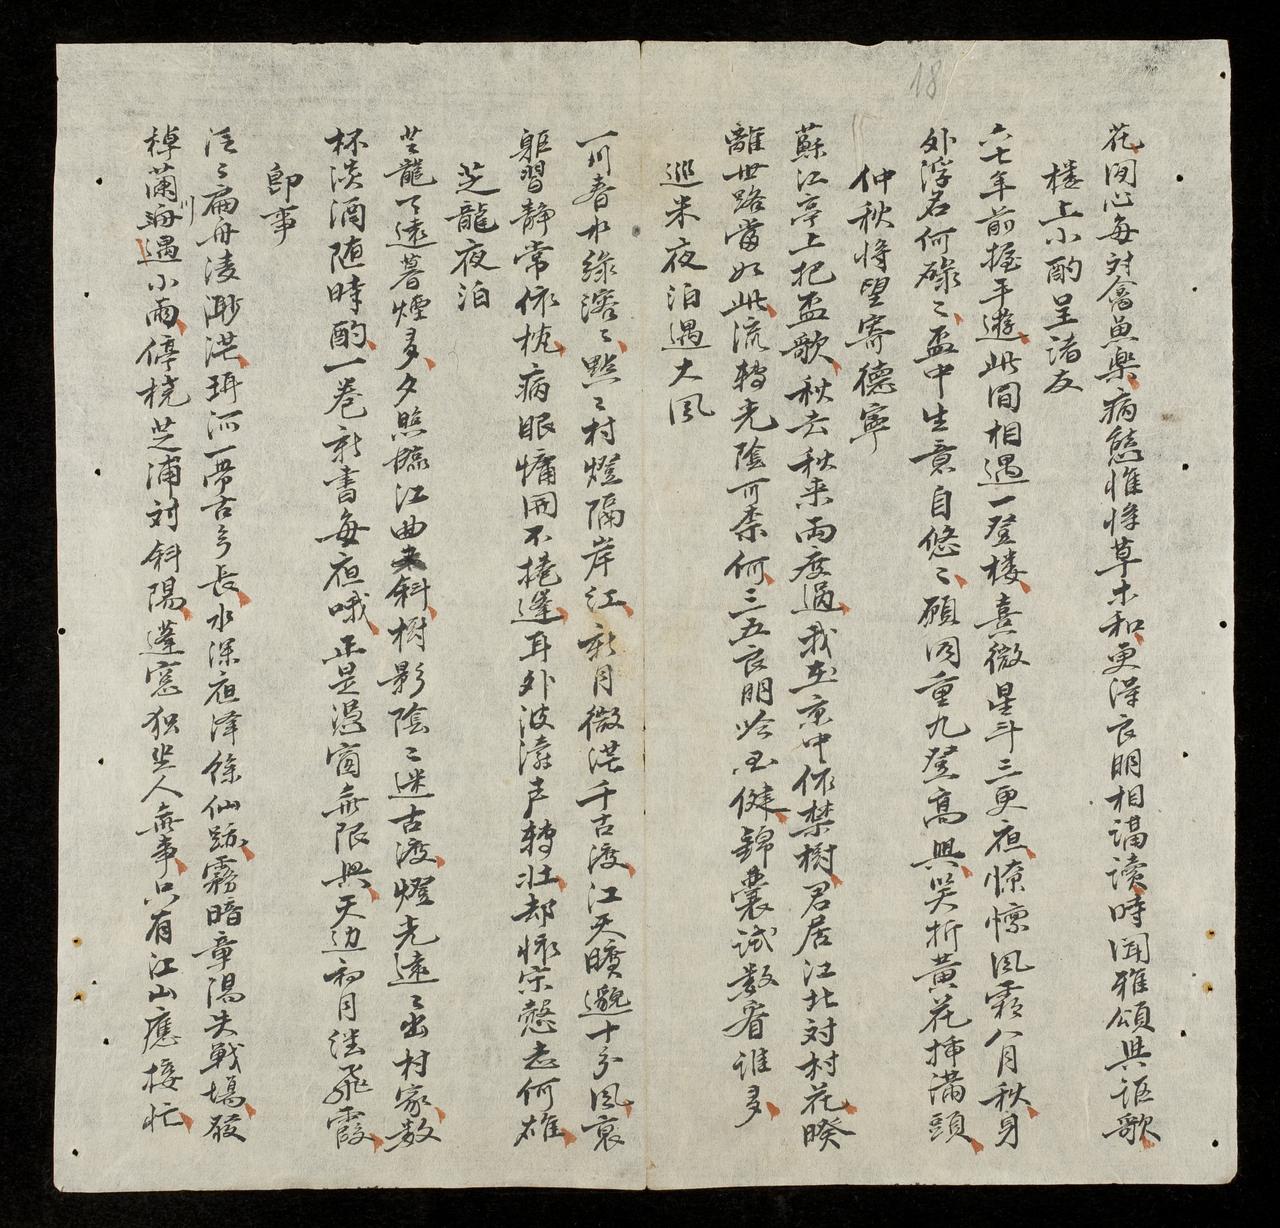 18
花間心每対禽魚樂病態惟将草木和更得良明相講讀時聞雅頌與謳歌
楼上小酌呈諸友
六七年前握手遊此間相遇一登楼熹微星斗三更夜憭懍风霜八月秋身
外浮名何碌〻盃中生意自悠〻願同重九登高興笑折黃花挿滿頭
仲秋将望寄德寧
蘇江亭上把盃歌秋去秋来两度過我在京中依禁樹君居江北対村花暌
離世路當如此流轉光陰可柰何三五良明吟思健錦囊試数看誰多
巡米夜泊遇大风
一川春水綠溶〻點〻村燈隔岸江新月微茫千古渡江天曠邈十分风寰
軀習静常依枕病眼慵開不捲篷耳外波濤声轉壮却怀宗愨志何雄
芝龍夜泊
芝龍了遠暮煙多夕照臨江曲斜樹影陰〻迷古渡燈光遠〻出村家数
杯淡酒随時酌一巻新書每夜哦正是憑窗無限興天边初月伴飛霞
即事
泛〻扁舟凌渺茫珥河一帶古今長水深夜澤餘仙跡霧暗章陽失戦塲發
棹蘭川遇小雨停桡芝浦対斜陽篷窓独坐人無事只有江山應接忙